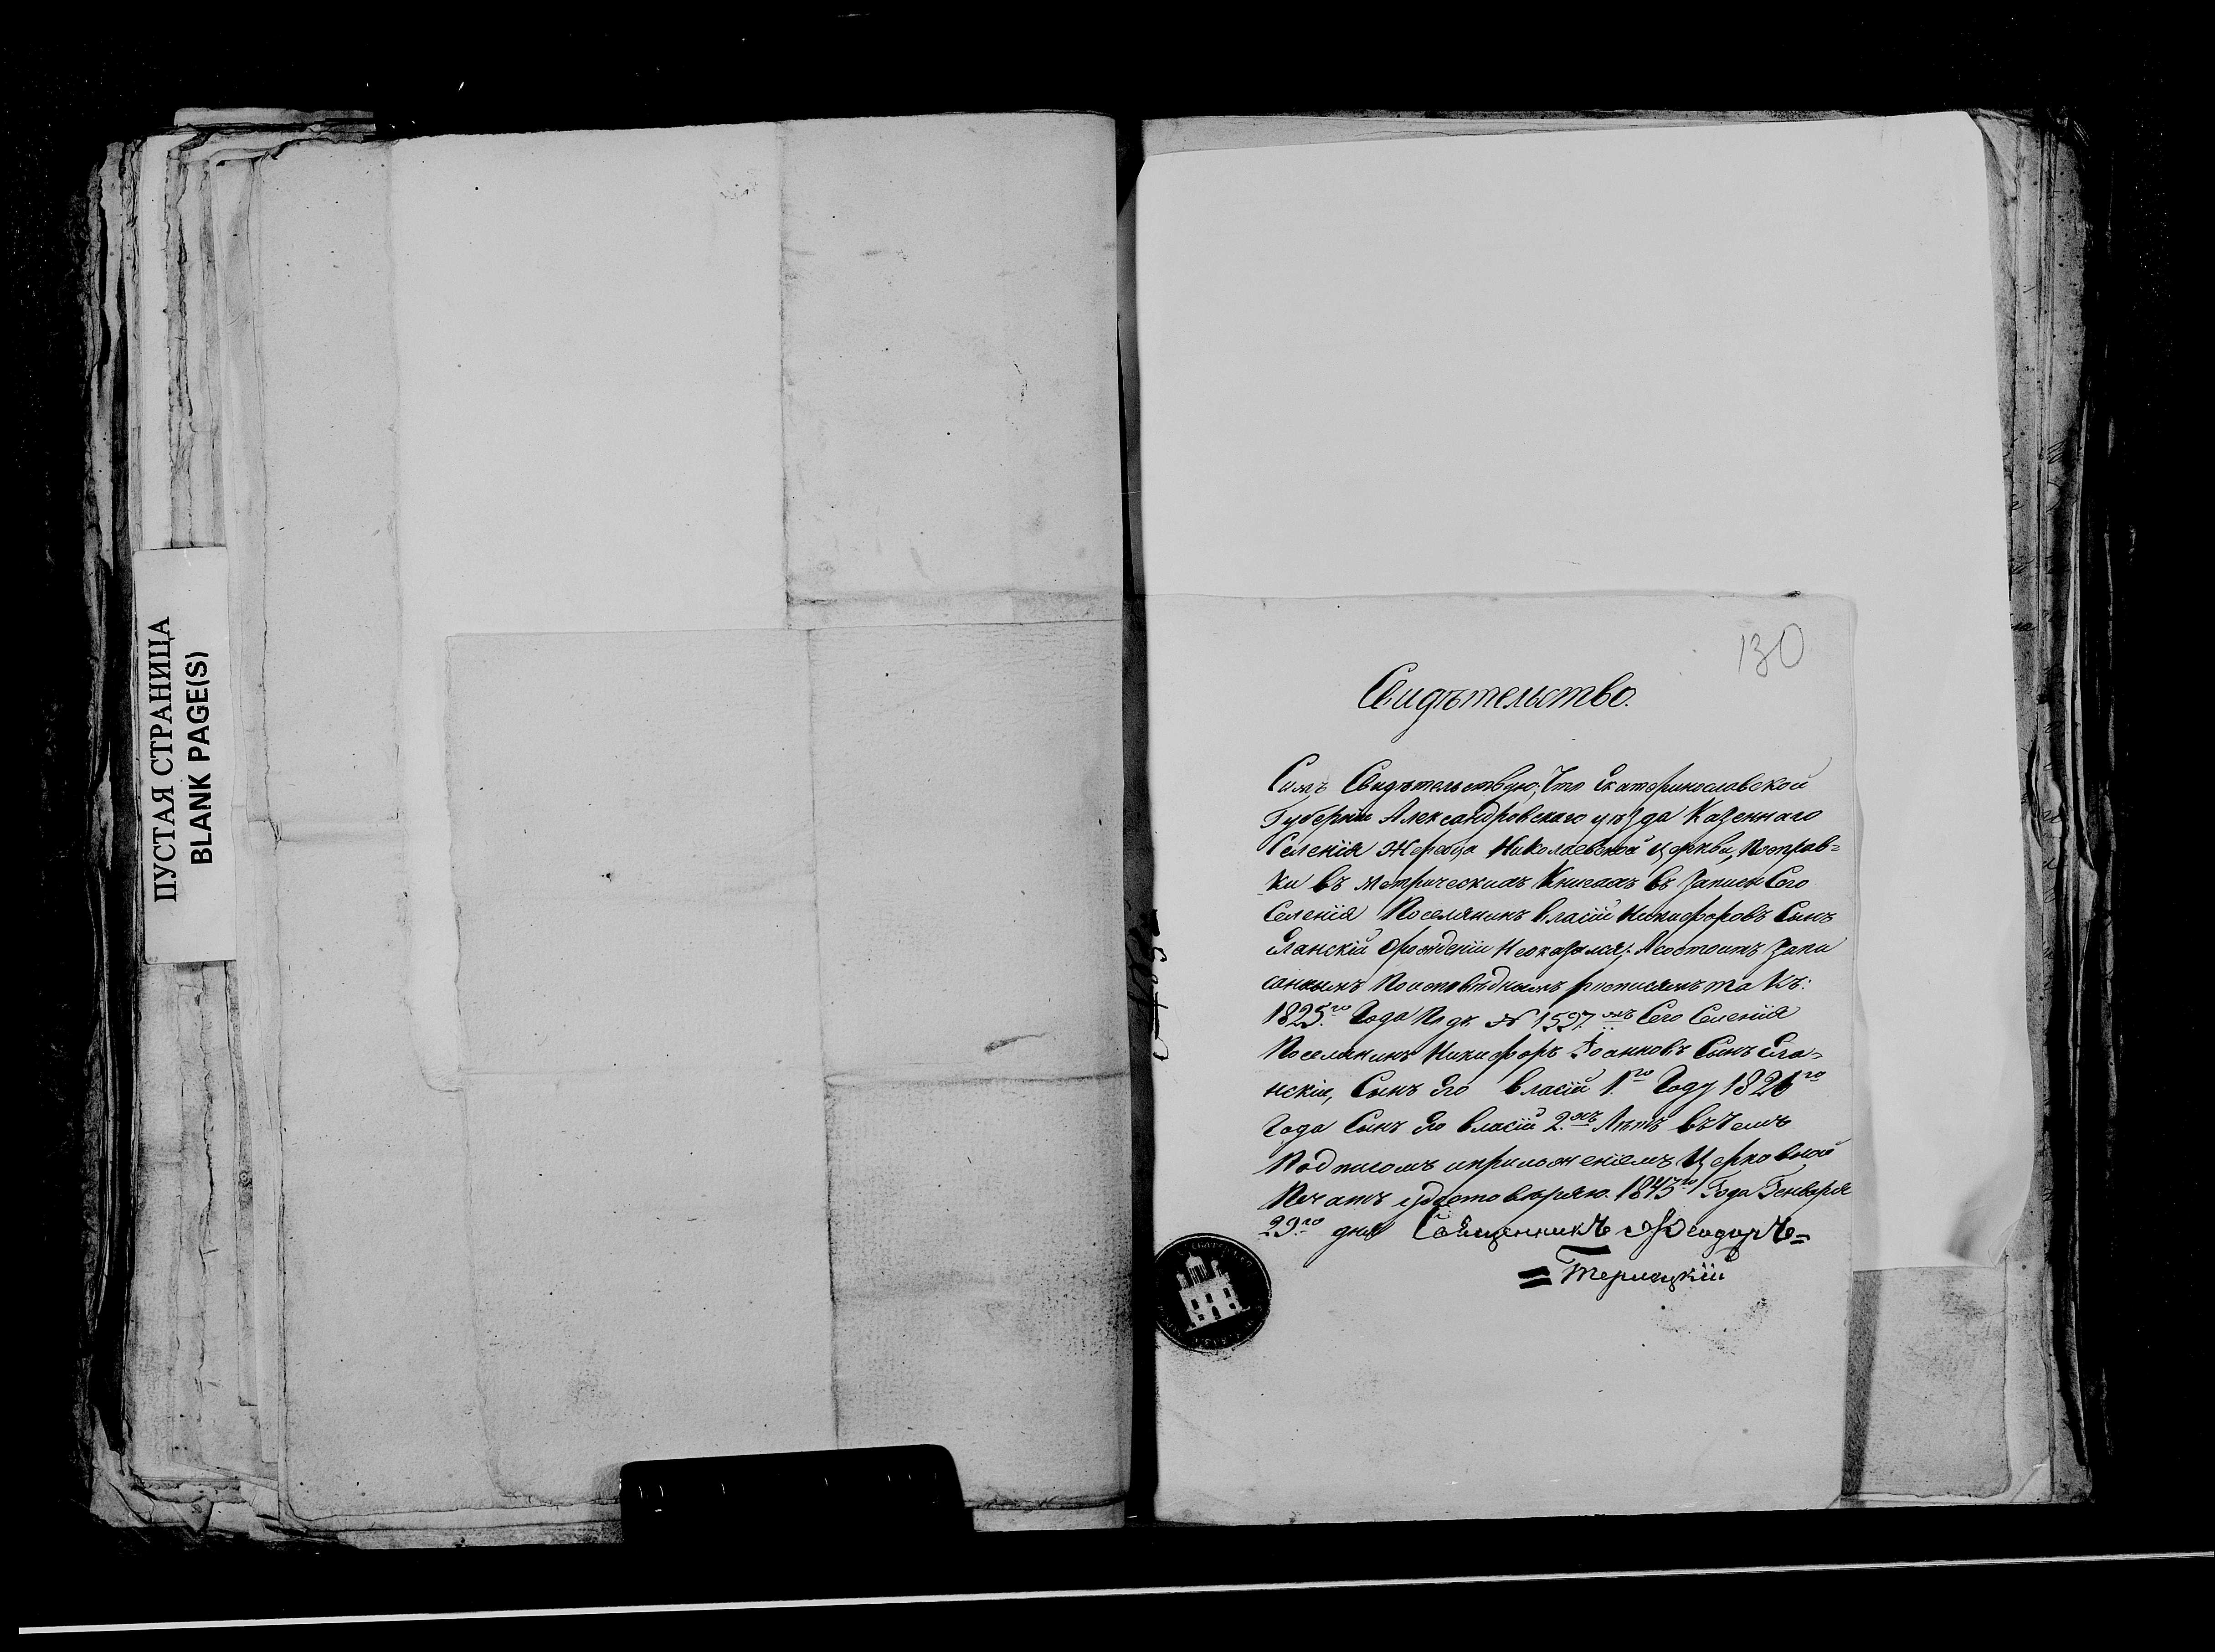 ПУСТАЯ СТРАНИЦА
BLANK PAGE(S)
130
Свидѣтельство.
Симъ Свидѣтельствую, Что Екатеринославской
Губернiи Александровскаго уѣзда Казеннаго
Селенiя Жеребца Николаевской церкви, Посправ=
ки въ метрическихъ Книгахъ въ записи Сего
Селенiя Поселянинъ Власiй Никифоровъ Сынъ
Еланскiй Орожденiи Неоказался; А состоитъ запи
саннымъ Поисповѣднымъ росписямъ такъ:
1825го Года Подъ № 1597мъ Сего Селенiя
Поселянинъ Никифоръ Iоанновъ Сынъ Ела=
нскiи, Сынъ Его Власiй 1.го Году 1826го
Года Сынъ Его Власiй 2.хъ Лѣтъ Въ Чемъ
Подписомъ иприложенiемъ Церковной
Печати удостовѣряю. 1843го Года Генваря
29.го дня Священникъ Ѳеодоръ=
=Терницкiй